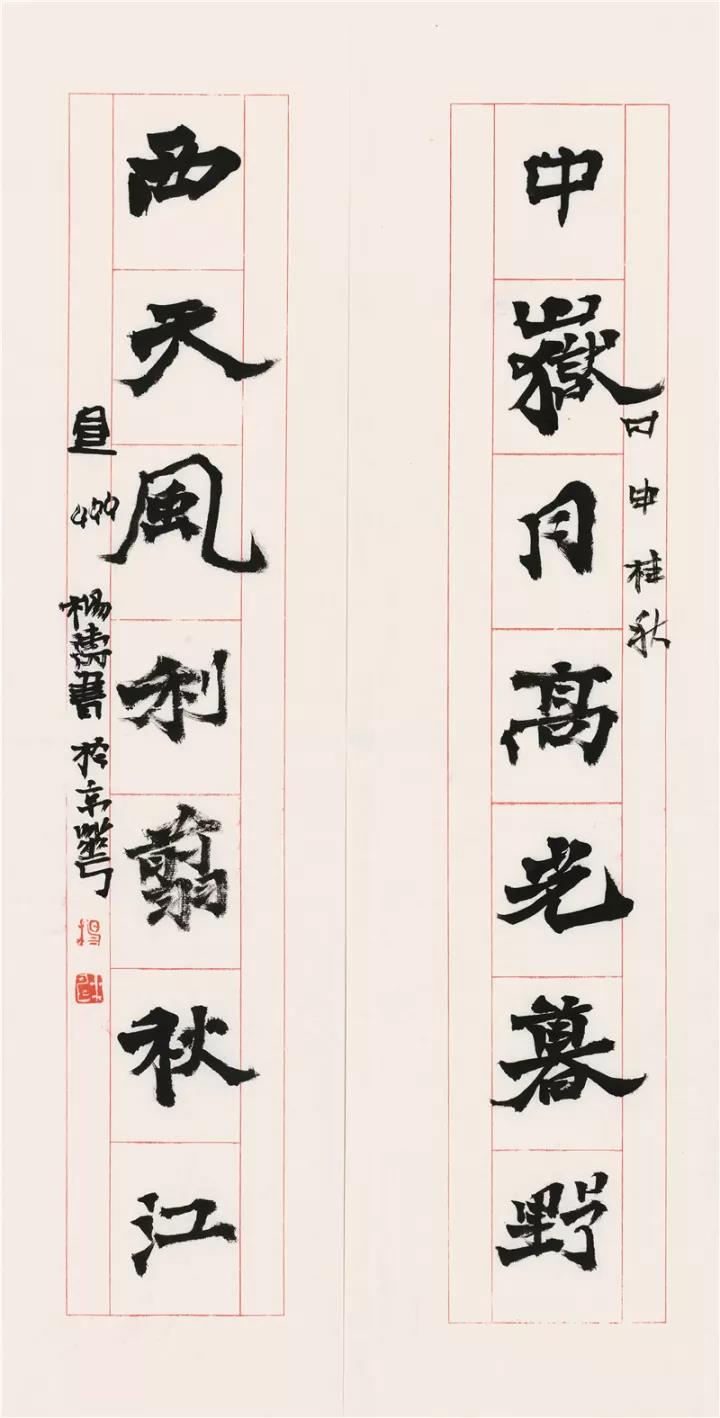 中嶽月高光暮野
丙申桂秋
西天風利翦秋江
楊濤書於京